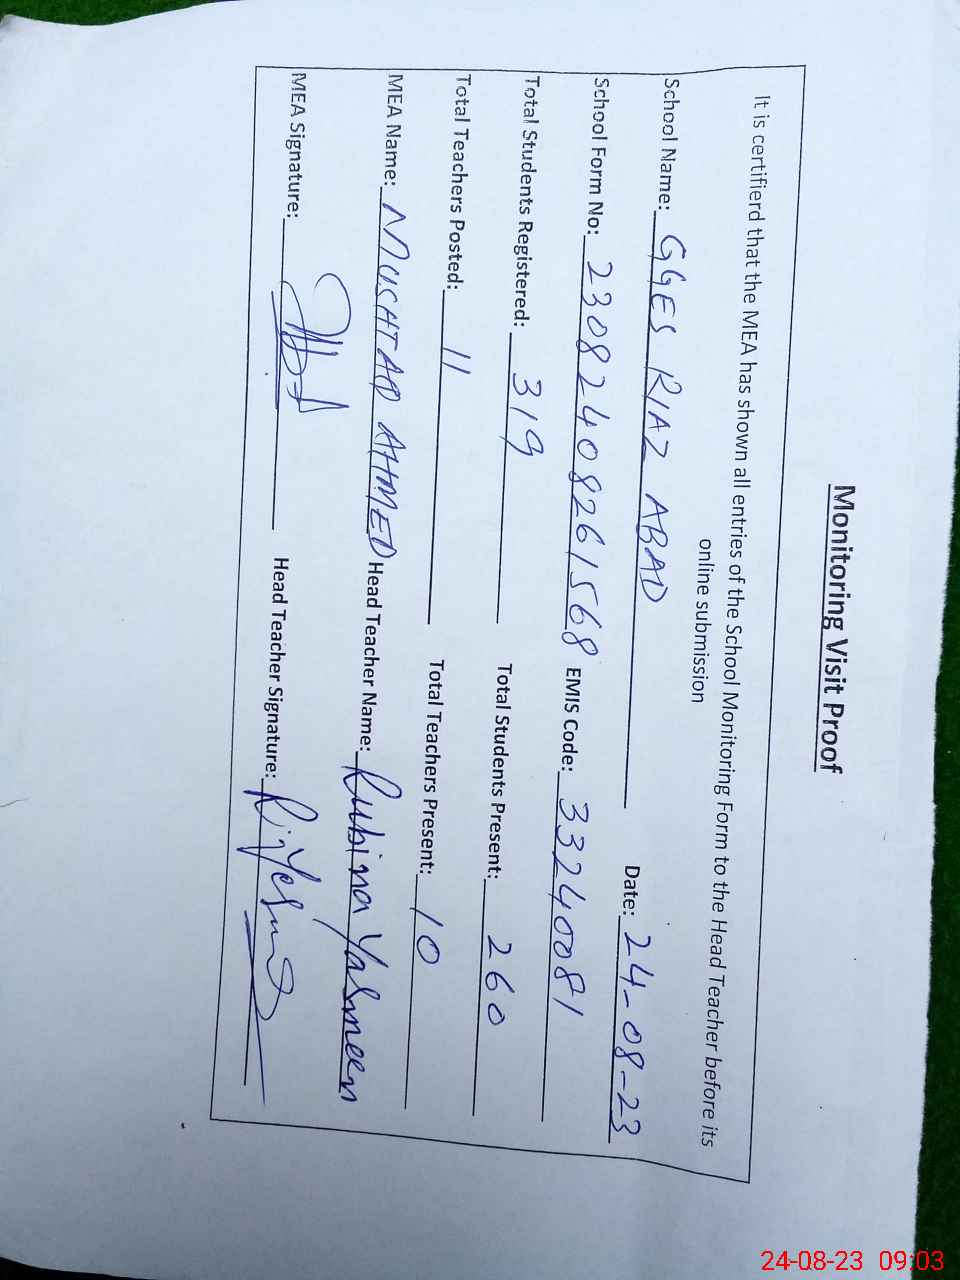 Monitoring Visit Proof
It is certifierd that the MEA has shown all entries of the School Monitoring Form to the Head Teacher before its
online submission
School Name: GGES RIAZ ABAD Date: 24-08-23
School Form No: 23082408261568 EMIS Code: 33240081
Total Students Registered: 319 Total Students Present: 260
Total Teachers Posted: 11 Total Teachers Present: 10
MEA Name: MUSHTAQ AHMED Head Teacher Name: Rubina Yasmeen
MEA Signature: Head Teacher Signature:
24-08-23 09:03